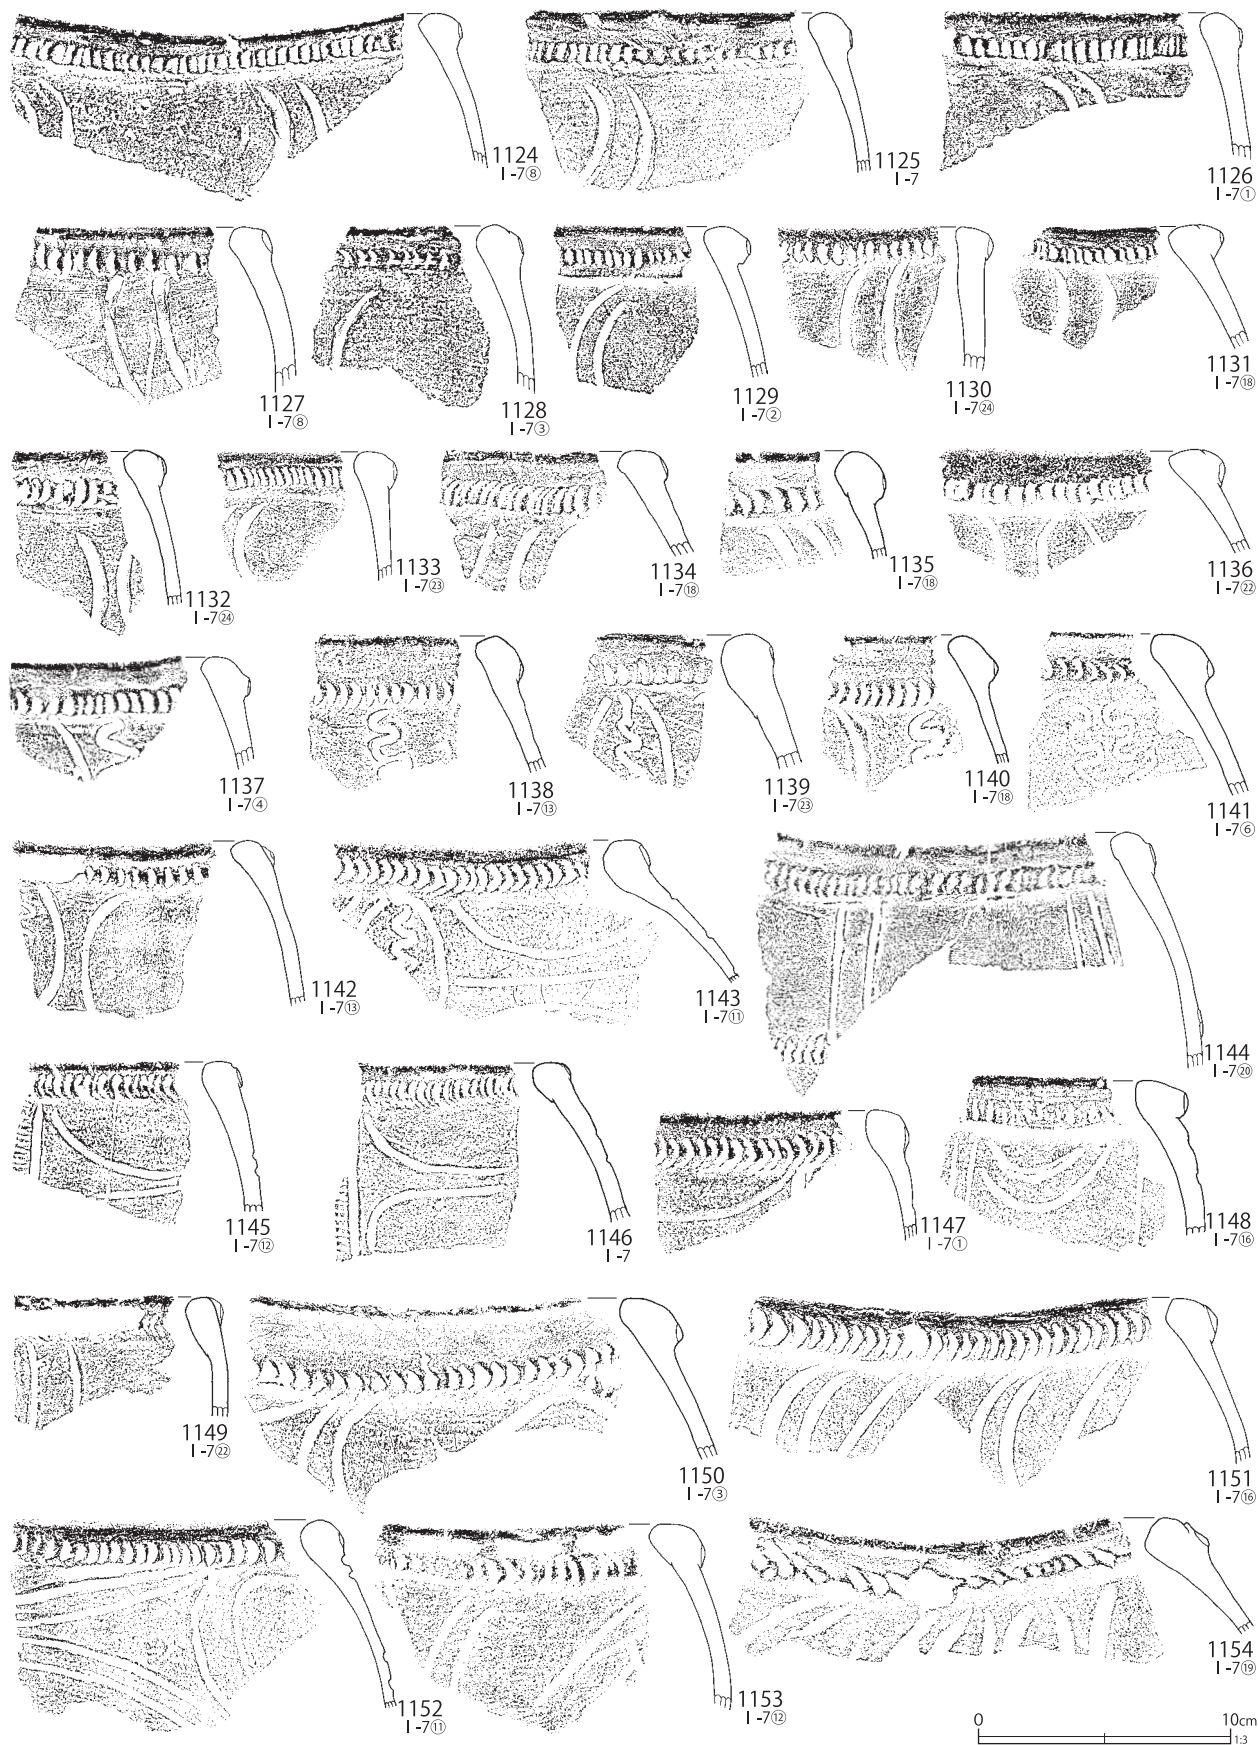 1124
Ⅰ-7⑧
1125
Ⅰ-7
1126
Ⅰ-7①
1127
Ⅰ-7⑧
1128
Ⅰ-7③
1129
Ⅰ-7②
1130
Ⅰ-7㉔
1131
Ⅰ-7⑱
1132
Ⅰ-7㉔
1133
Ⅰ-7㉓
1134
Ⅰ-7⑱
1135
Ⅰ-7⑱
1136
Ⅰ-7㉒
1137
Ⅰ-7④
1138
Ⅰ-7⑬
1139
Ⅰ-7㉓
1140
Ⅰ-7⑱
1141
Ⅰ-7⑥
1142
Ⅰ-7⑬
1143
Ⅰ-7⑪
1144
Ⅰ-7⑳
1145
Ⅰ-7⑫
1146
Ⅰ-7
1147
Ⅰ-7①
1148
Ⅰ-7⑯
1149
Ⅰ-7㉒
1150
Ⅰ-7③
1151
Ⅰ-7⑯
1152
Ⅰ-7⑪
1153
Ⅰ-7⑫
1154
Ⅰ-7⑲
0 10cm
1:3